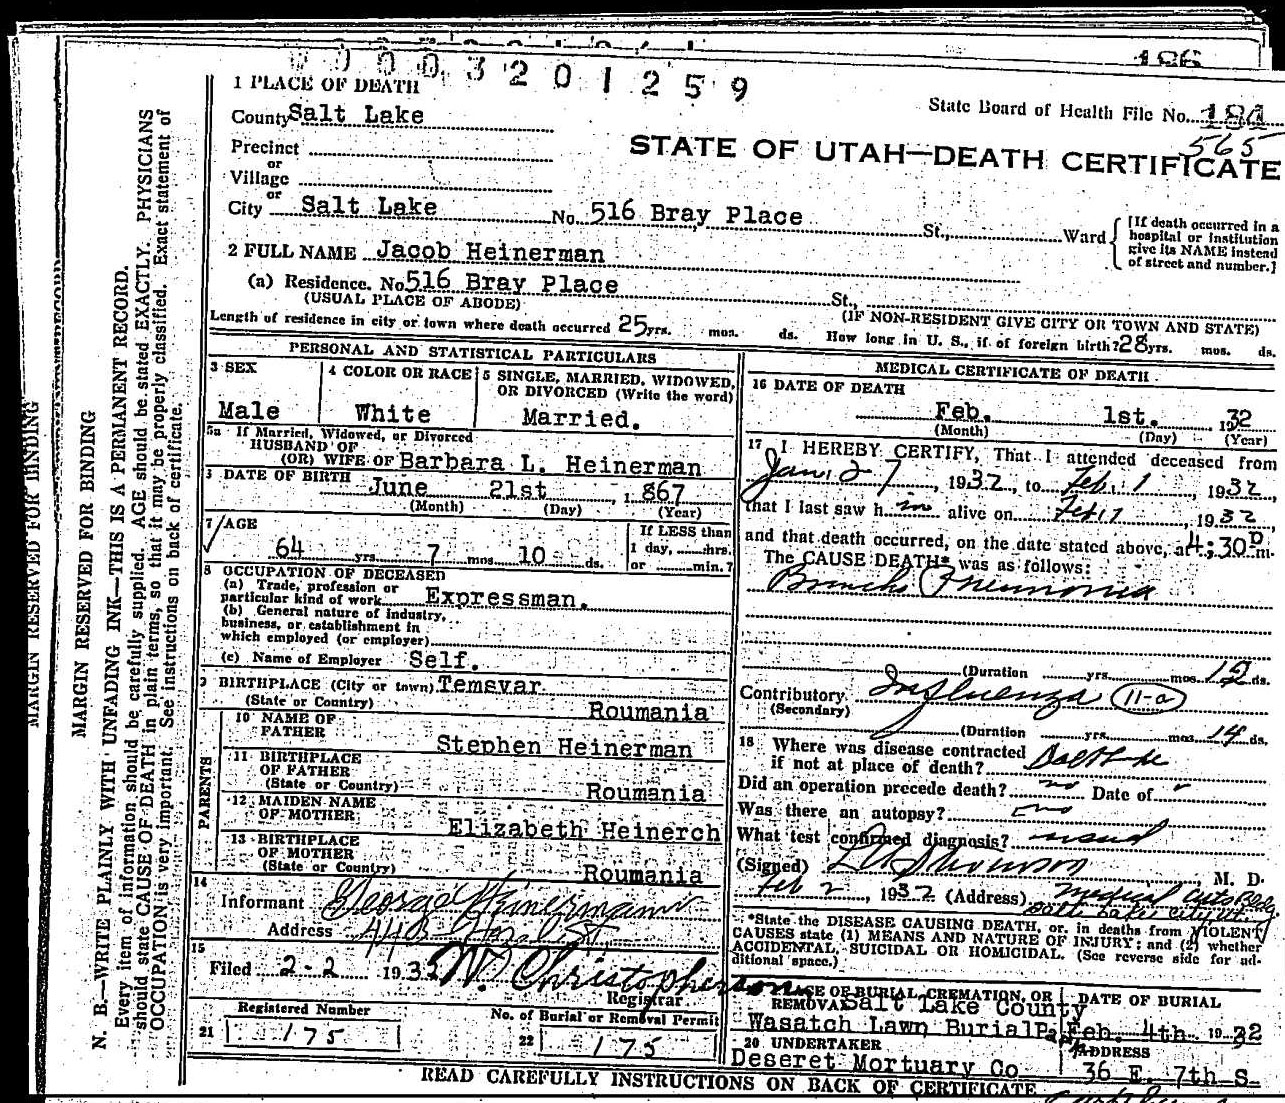 186
0003201259
1 PLACE OF DEATH
State Board of Health File No. 184
565
County Salt Lake
STATE OF UTAH—DEATH CERTIFICATE
Precinct
or
Village
or
City Salt Lake No. 516 Bray Place St., Ward
[If death occurred in a hospital or institution give its NAME instead of street and number.]
2 FULL NAME Jacob Heinerman
(a) Residence. No 516 Bray Place St.,
(USUAL PLACE OF ABODE) (IF NON-RESIDENT GIVE CITY OR TOWN AND STATE)
Length of residence in city or town where death occurred 25 yrs. mos. ds. How long in U. S., if of foreign birth? 28 yrs. mos. ds.
PERSONAL AND STATISTICAL PARTICULARS
3 SEX
Male
4 COLOR OR RACE
White
5 SINGLE, MARRIED, WIDOWED, OR DIVORCED (Write the word)
Married.
5a If Married, Widowed, or Divorced
HUSBAND OF
(OR) WIFE OF Barbara L. Heinerman
DATE OF BIRTH June 21st, 1867
(Month) (Day) (Year)
7 AGE
64 yrs. 7 mos. 10 ds.
If LESS than
1 day, hrs.
or min.?
8 OCCUPATION OF DECEASED
(a) Trade, profession or
particular kind of work Expressman.
(b) General nature of industry,
business, or establishment in
which employed (or employer)
(c) Name of Employer Self.
9 BIRTHPLACE (City or town) Temsvar
(State or Country) Roumania
PARENTS
10 NAME OF
FATHER Stephen Heinerman
11 BIRTHPLACE
OF FATHER
(State or Country) Roumania
12 MAIDEN NAME
OF MOTHER Elizabeth Heinerch
13 BIRTHPLACE
OF MOTHER
(State or Country) Roumania
14
Informant George Heinerman
Address St
15
Filed 2-2 1932 W. Christopherson
Registrar
Registered Number
21 175
No. of Burial or Removal Permit
22 175
MEDICAL CERTIFICATE OF DEATH
16 DATE OF DEATH
Feb. 1st. 1932
(Month) (Day) (Year)
17 I HEREBY CERTIFY, That I attended deceased from
Jan. 27, 1932, to Feb. 1, 1932,
that I last saw him alive on Feb 1, 1932,
and that death occurred, on the date stated above, at 4:30 P m.
The CAUSE DEATH* was as follows:
Broncho Pneumonia
(Duration yrs. mos. ds.
Contributory Influenza 11-a
(Secondary)
(Duration yrs. mos. 14 ds.
18 Where was disease contracted
if not at place of death? Salt Lake
Did an operation precede death? no Date of
Was there an autopsy? no
What test confirmed diagnosis? usual
(Signed) M. D.
Feb 2, 1932 (Address) Medical Arts Bldg
Salt Lake City Ut.
*State the DISEASE CAUSING DEATH, or, in deaths from VIOLENT
CAUSES state (1) MEANS AND NATURE OF INJURY; and (2) whether
ACCIDENTAL, SUICIDAL OR HOMICIDAL. (See reverse side for ad-
ditional space.)
OF BURIAL, CREMATION, OR
REMOVAL Salt Lake County
Wasatch Lawn Burial Park
DATE OF BURIAL
Feb. 4th 1932
20 UNDERTAKER
Deseret Mortuary Co
ADDRESS
36 E. 7th S.
READ CAREFULLY INSTRUCTIONS ON BACK OF CERTIFICATE
MARGIN RESERVED FOR BINDING
MARGIN RESERVED FOR BINDING
N. B.—WRITE PLAINLY WITH UNFADING INK—THIS IS A PERMANENT RECORD.
Every item of information should be carefully supplied. AGE should be stated EXACTLY. PHYSICIANS
should state CAUSE OF DEATH in plain terms, so that it may be properly classified. Exact statement of
OCCUPATION is very important. See instructions on back of certificate.